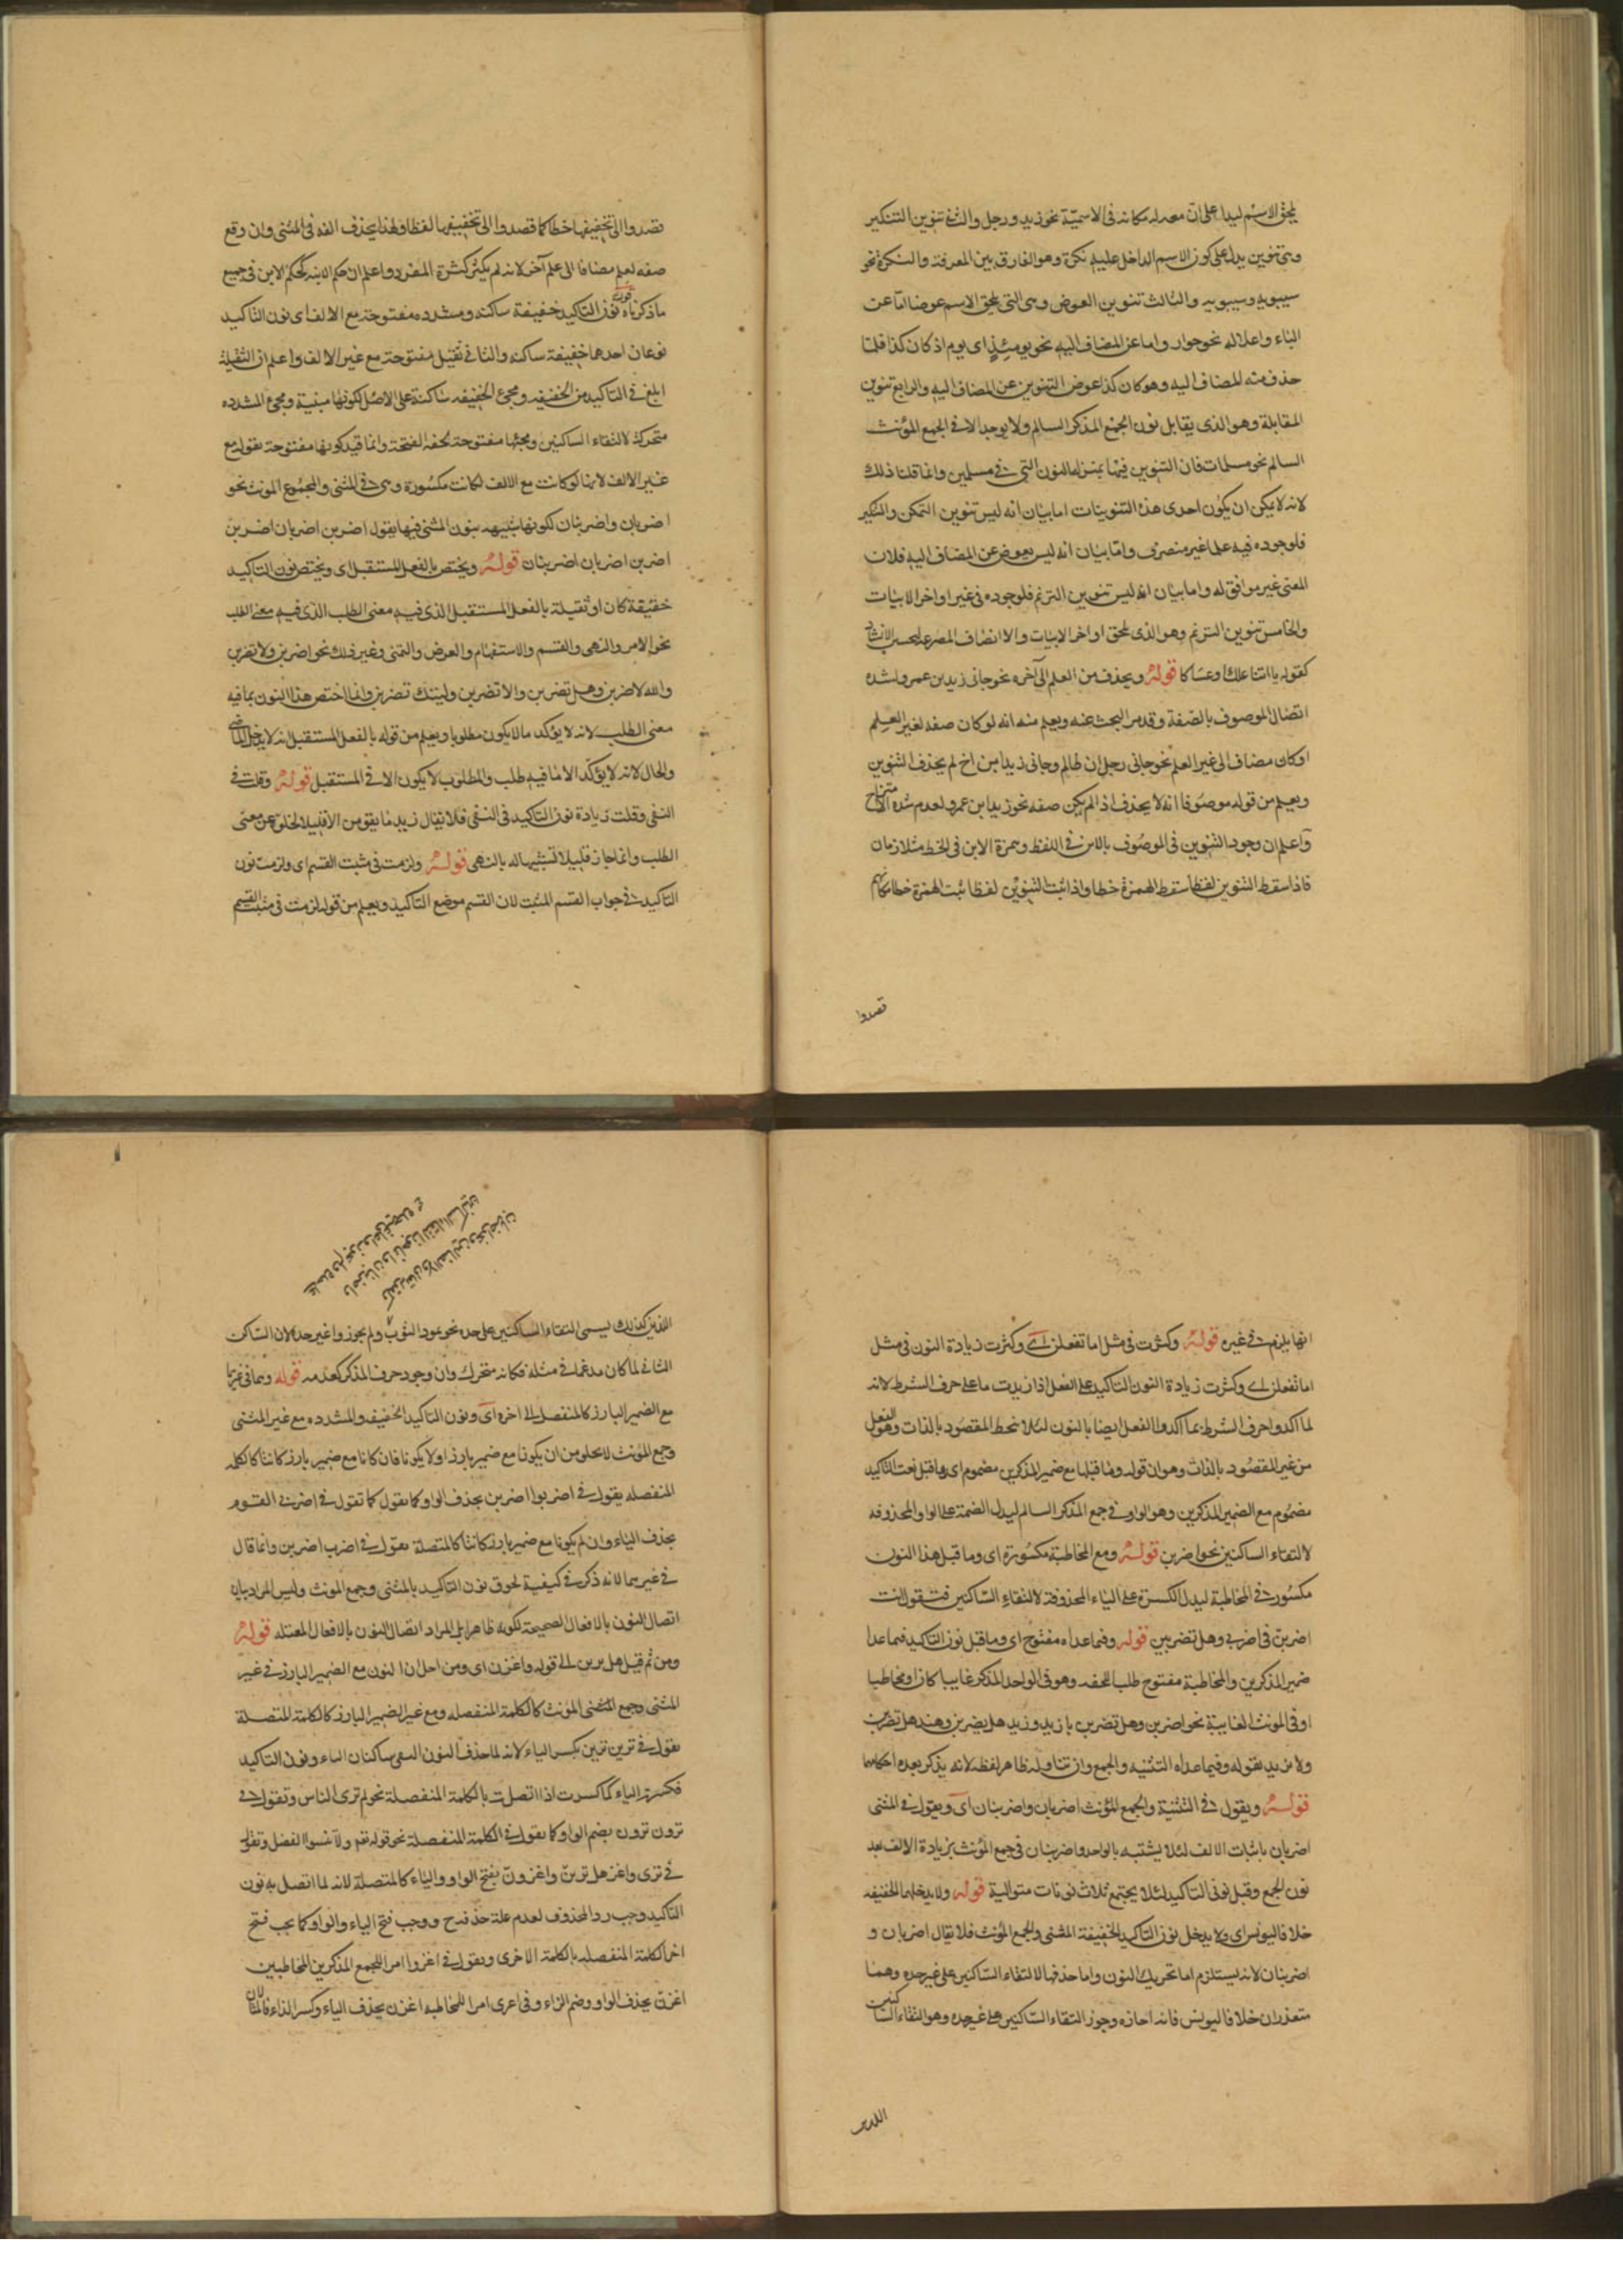 يلحق الاسم ليدل على ان معه له مكانه فى الاسمية نحو زيد ورجل والثانى تنوين التنكير
وهى تنوين يدل على كون الاسم الداخل عليه نكرة وهو الفارق بين المعرفة والنكرة نحو
سيبويهِ وسيبويه والثالث تنوين العوض وهى التى يلحق الاسم عوضا اما عن
الياء واعلاله نحو جوار واما عن المضاف اليه نحو يومئذٍ اى يوم اذ كان كذا فلما
حذف منه المضاف اليه وهو كان كذا عوض التنوين عن المضاف اليه والرابع تنوين
المقابلة وهو الذى يقابل نون الجمع المذكر السالم ولا يوجد الا فى الجمع المؤنث
السالم نحو مسلمات فان التنوين فيها بمنزله النون التى فى مسلمين وانما قلنا ذلك
لانه لا يمكن ان يكون احدى هذه التنوينات اما بيان انه ليس تنوين التمكن والتنكير
فلوجوده فيه علما غير منصرف واما بيان انه ليس بعوض عن المضاف اليه فلان
المعنى غير موافق له واما بيان انه ليس تنوين الترنم فلوجوده فى غير اواخر الابيات
والخامس تنوين الترنم وهو الذى يلحق اواخر الابيات والانصاف المصرعه لحسن الانشاد
كقوله يا ابتا علك او عساكا قوله ويحذف من العلم الى آخره نحو جانى زيد بن عمرو لشدة
اتصال الموصوف بالصفة وقد مر البحث عنه ويعلم منه انه لو كان صفه لغير العلم
او كان مضافا الى غير العلم نحو جانى رجل ابن ظالم وجانى زيد ابن اخ لم يحذف التنوين
ويعلم من قوله موصوفا انه لا يحذف اذا لم يكن صفه نحو زيد ابن عمرو لعدم شدة الامتزاج
واعلم ان وجود التنوين فى الموصوف بالابن فى اللفظ وهمزة الابن فى الخط متلازمان
فاذا سقط التنوين لفظا سقط الهمزة خطا واذا ثبت التنوين لفظا ثبت الهمزة خطا
قصدوا
قصدوا الى تخفيفها خطا كما قصدوا الى تخفيفها لفظا ولهذا يحذف الفه فى المثنى وان وقع
صفه لعلم مضافا الى علم آخر لانه لم يكثر كثرة المفرد واعلم ان حكم الابنه كحكم الابن فى جميع
ما ذكرناه قوله نون التاكيد خفيفة ساكنه ومشدده مفتوحة مع الالف اى نون التاكيد
نوعان احدها خفيفة ساكنه والثانى ثقيل مفتوحة مع غير الالف واعلم ان الثقيلة
ابلغ فى التاكيد من الخفيفه ومجئ الخفيفه ساكنة على الاصل لكونها مبنية ومجئ المشدده
متحركة لالتقاء الساكنين ومجئها مفتوحة لخفة الفتحة وانما قيد كونها مفتوحة بقوله مع
غير الالف لانها لو كانت مع الالف لكانت مكسورة وهى فى المثنى والمجموع المونث نحو
اضربان واضربنان لكونها شبيهه بنون المثنى فيها يقول اضربن اضربان اضربن
اضربن اضربان اضربنان قوله ويختص بالفعل المستقبل اى ويختص نون التاكيد
خفيفة كان او ثقيلة بالفعل المستقبل الذى فيه معنى الطلب الذى فيه معنى الطلب
نحو الامر والنهى والقسم والاستفهام والعرض والتمنى وغير ذلك نحو اضربن ولا تضربن
والله لاضربن وهل تضربن والا تضربن وليتك تضربن وانما اختص هذا النون بما فيه
معنى الطلب لانه لا يؤكد ما لا يكون مطلوبا ويعلم من قوله بالفعل المستقبل انه لا يدخل الماضى
والحال لانه لا يؤكد الا ما فيه طلب والمطلوب لا يكون الا فى المستقبل قوله وقلت فى
النفى وقلت زيادة نون التاكيد فى النفى فلا يقال زيد ما يقومن الا قليلا لخلوه عن معنى
الطلب وانما جاز قليلا تشبيها له بالنهى قوله ولزمت فى مثبت القسم اى ولزمت نون
التاكيد فى جواب القسم المثبت لان القسم موضع التاكيد ويعلم من قوله لزمت فى مثبت القسم
انها يلزم فى غيره قوله وكثرت فى مثل اما تفعلن اى وكثرت زيادة النون فى مثل
اما تفعلن اى وكثرت زيادة النون التاكيد على الفعل اذا زيدت ما على حرف الشرط لانه
لما اكدوا حرف الشرط بما اكدوا الفعل ايضا بالنون لئلا ينحط المقصود بالذات وهو الفعل
من غير المقصود بالذات وهو ان قوله وما قبلها مع ضمير المذكرين مضموم اى وما قبل نون التاكيد
مضموم مع الضمير المذكرين وهو الواو فى جمع المذكر السالم ليدل الضمة على الواو المحذوفه
لالتقاء الساكنين نحو اضربن قوله ومع المخاطبة مكسورة اى وما قبل هذا النون
مكسور فى المخاطبة ليدل الكسرة على الياء المحذوفة لالتقاء الساكنين فتقول انت
اضربن فى اضربى وهل تضربين قوله وفيما عداه مفتوح اى وما قبل نون التاكيد فيما عدا
ضمير المذكرين والمخاطبة مفتوح طلبا للخفه وهو فى الواحد المذكر غايبا كان او مخاطبا
او فى المونث الغايبة نحو اضربن وهل تضربن يا زيد وزيد هل يضربن وهند هل تضربن
ولا يريد بقوله وفيما عداه التثنيه والجمع وان تناوله ظاهر لفظه لانه يذكر بعده احكامها
قوله ويقول فى التثنية والجمع المؤنث اضربان واضربنان اى ويقول فى المثنى
اضربان باثبات الالف لئلا يشتبه بالواحد واضربنان فى جمع المؤنث بزيادة الالف بعد
نون الجمع وقبل نونى التاكيد لئلا يجتمع ثلاث نونات متوالية قوله ولا يدخلهما الخفيفه
خلافا ليونس اى ولا يدخل نون التاكيد الخفيفة المثنى والجمع المؤنث فلا يقال اضربان و
اضربنان لانه يستلزم اما تحريك النون واما حذفها لالتقاء الساكنين على غير حده وهما
متعذران خلافا ليونس فانه اجازه وجوز التقاء الساكنين على غير حده وهو التقاء الساكنين
اللذين
اللذين كذلك ليسمى التقاء الساكنين على حده نحو تمود الثوب ولم يجوزوا غير حده لان الساكن
الثانى لما كان مدغما فى مثله فكانه متحرك وان وجود حرف المذكر كعدمه قوله وهما فى غيرهما
مع الضمير البارز كالمنفصل الى اخره اى ونون التاكيد الخفيف والمشدده مع غير المثنى
وجمع المؤنث لا يخلو من ان يكونا مع ضمير بارز او لا يكونا فان كانا مع ضمير بارز كانتا كالكلمه
المنفصله يقول فى اضربوا اضربن بحذف الواو كما يقول كما تقول فى اضربى القوم
بحذف الياء وان لم يكونا مع ضمير بارز كانتا كالمتصلة يقول فى اضرب اضربن وانما قال
فى غيرهما لانه ذكر فى كيفية لحوق نون التاكيد بالمثنى وجمع المونث وليس المراد بيان
اتصال النون بالافعال الصحيحة لكونه ظاهرا بل المراد اتصال النون بالافعال المعتله قوله
ومن ثم قيل هل ترين الى قوله واغزن اى ومن اجل ان النون مع الضمير البارز فى غير
المثنى وجمع المثنى المؤنث كالكلمة المنفصله ومع غير الضمير البارز كالكلمة المتصلة
يقول فى ترين ترين بكسر الياء لانه لما حذف النون التقى ساكنان الياء ونون التاكيد
فكسرت الياء كما كسرت اذا اتصلت بالكلمة المنفصلة نحو لم ترى الناس وتقول فى
ترون ترون بضم الواو كما يقول فى الكلمة المنفصلة نحو قوله تعم ولا تنسوا الفضل وتقول
فى ترى واغز هل ترين واغزون بفتح الواو والياء كالمتصلة لانه لما اتصل به نون
التاكيد وجب رد المحذوف لعدم علة حذفه ووجب فتح الياء والواو كما يجب فتح
اخر الكلمة المنفصله بالكلمة الاخرى ويقول فى اغزوا امرا للجمع المذكرين المخاطبين
اغزن بحذف الواو وضم الزاء وفى اغزى امرا للمخاطبه اغزن بحذف الياء وكسر الزاء